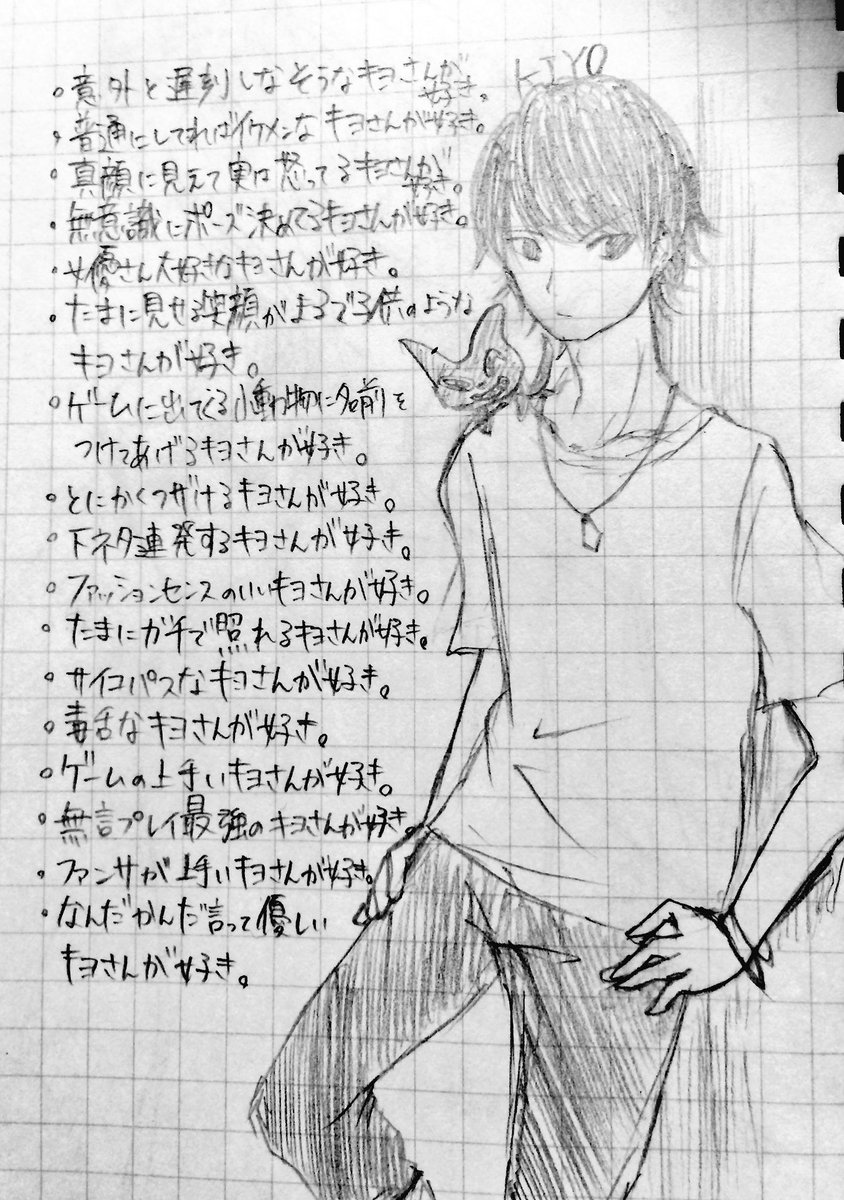 KIYO
。意外と遅刻しなそうなキヨさんが好き。
・普通にしてればイケメンなキヨさんが好き。
・真顔に見えて実は怒ってるキヨさんが好き。
・無意識にポーズ決めてるキヨさんが好き。
・女優さん大好きなキヨさんが好き。
・たまに見せる笑顔がまるで子供のような
キヨさんが好き。
。ゲームに出てくる小動物に名前を
つけてあげるキヨさんが好き。
。とにかくつざけるキヨさんが好き。
。下ネタ連発するキヨさんが好き。
。ファッションセンスのいいキヨさんが好き。
。たまにガチで照れるキヨさんが好き。
。サイコパスなキヨさんが好き。
。毒舌なキヨさんが好き。
。ゲームの上手いキヨさんが好き。
。無言プレイ最強のキヨさんが好き。
・ファンサが上手いキヨさんが好き。
・なんだかんだ言って優しい
キヨさんが好き。